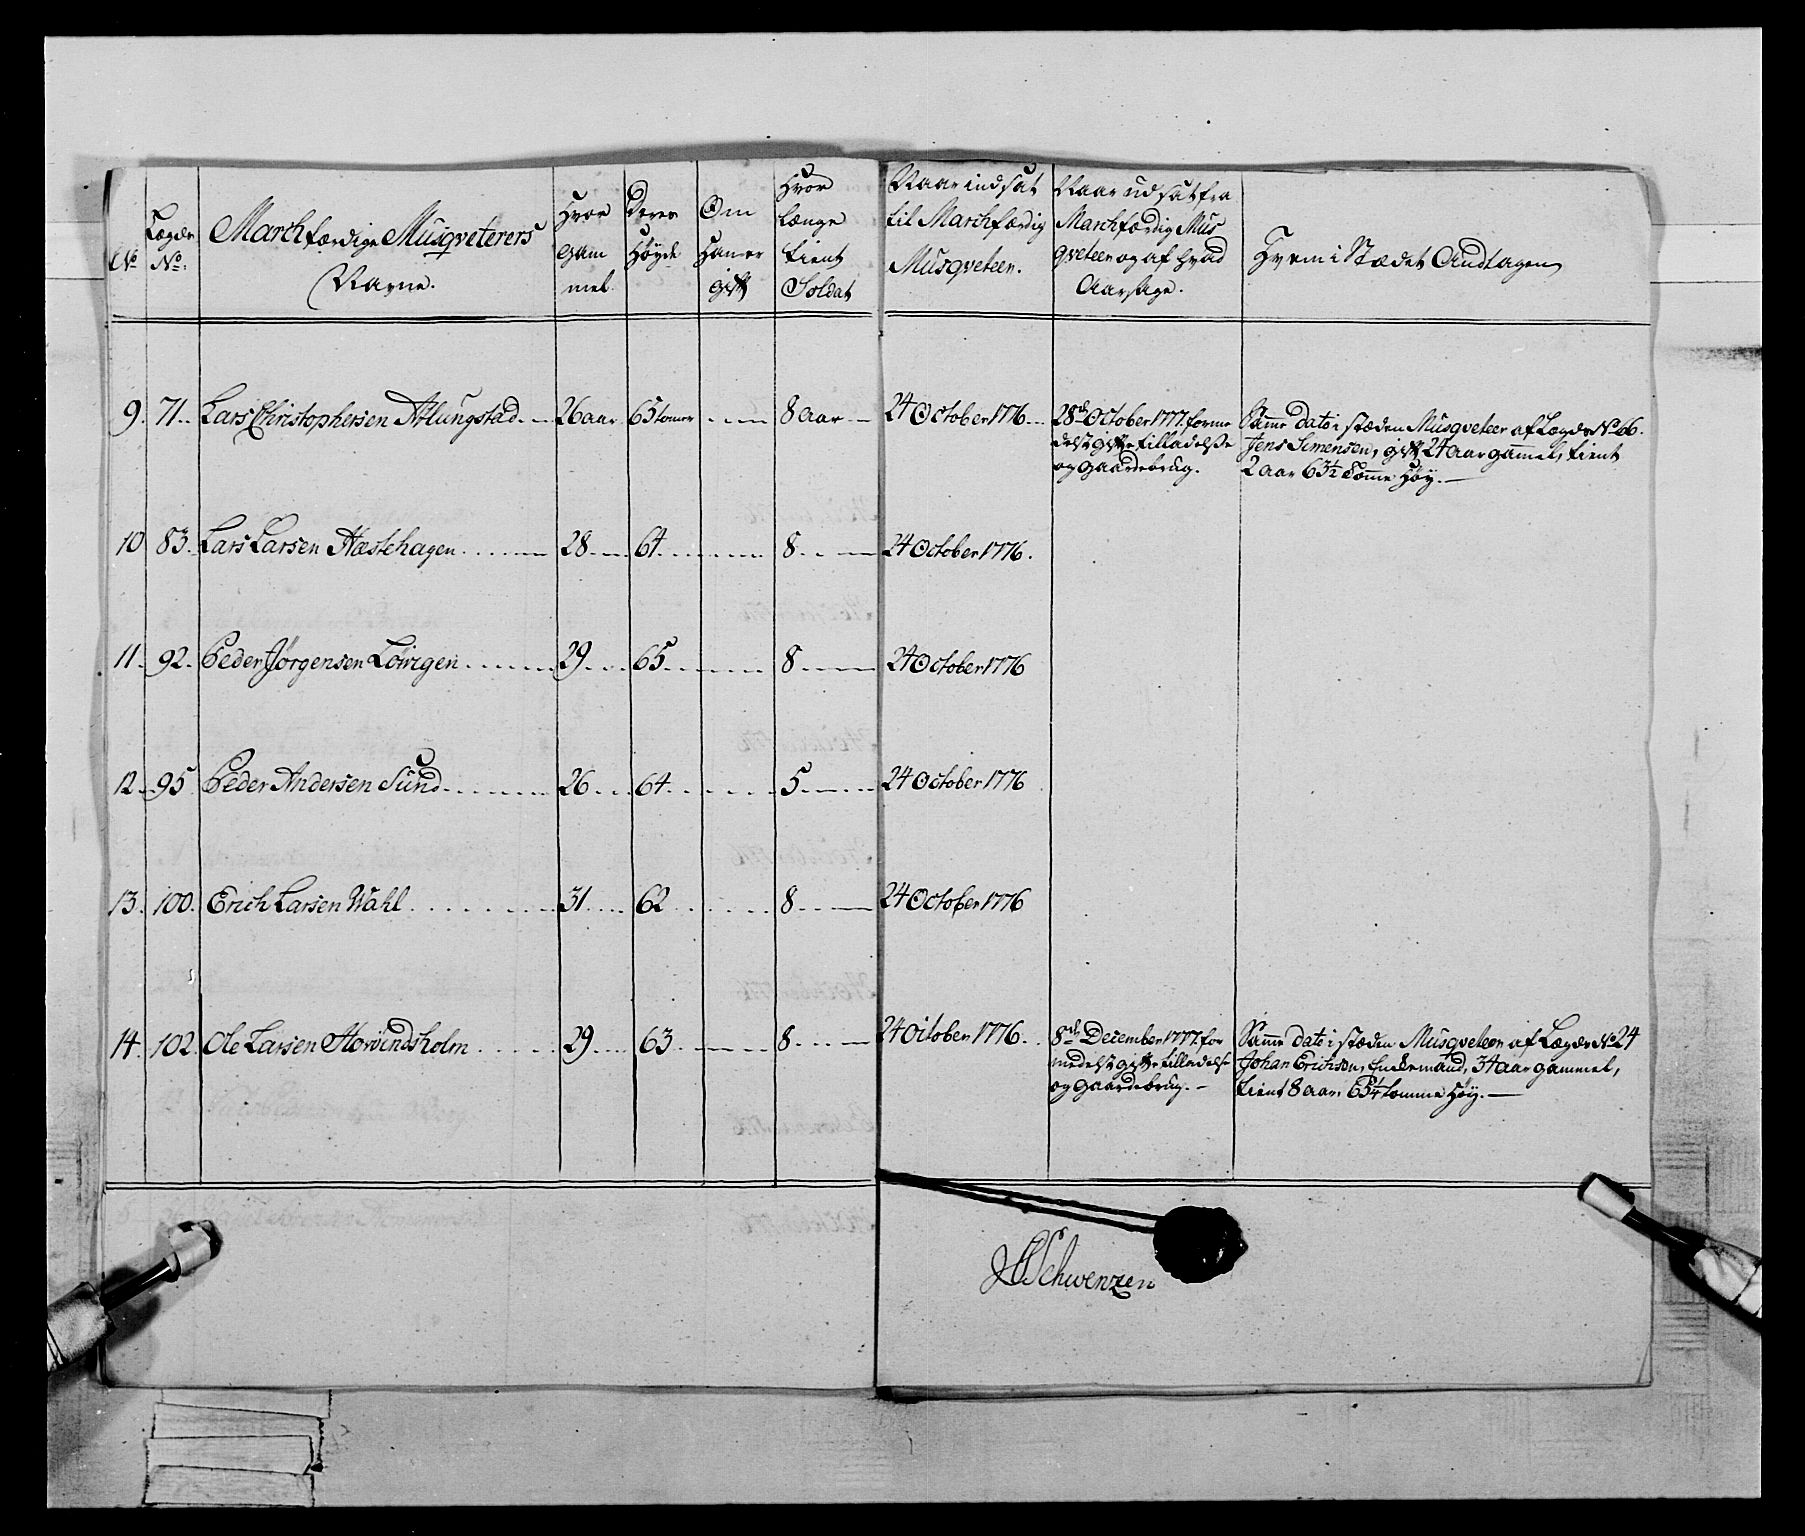 No
Lægds No:
Marchfærdige Musqveterers
Navne.
Hvor
gam
mel.
Deres
Høyde
Om
Han er
gift
Hvor
længe
tient
Soldat
Naar indsat
til Marchfærdig
Musqveteer.
Naar udsat fra
Marchfærdig Mus
qveteer og af hvad
Aarsage.
Hvem i Stædet Andtagen
9. 71. Lars Christophersen Atlungstad 26 aar 65 tomer 8 aar 24 October 1776
28de October 1777. forme
delst gifte tilladelse
og gaardebrug.
Samme dato i stæden Musqveteer af Lægds No 66.
Jens Simensen, gift, 24 aar gamel, tient
2 aar 63½ Tomme Høy.
10 83. Lars Larsen Hæstehagen 28 64 8 24 October 1776.
11. 92. Peder Jørgensen 29 65 8 24 October 1776
12. 95 Peder Andersen Sund 26 64 5 24 October 1776
13. 100. Erich Larsen Wahl 31 62 8 24 October 1776
14. 102. Ole Larsen Horvindsholm 29 63 8 24 October 1776.
8de December 1777. for
medelst gifte tilladelse
og gaardebrug.
Samme dato i stæden Musqveteer af Lægds No 24
Johan Erichsen, Enckemand, 34 aar gammel,
tient 8 aar, 63¼ tomme Høy.
Schwenzen